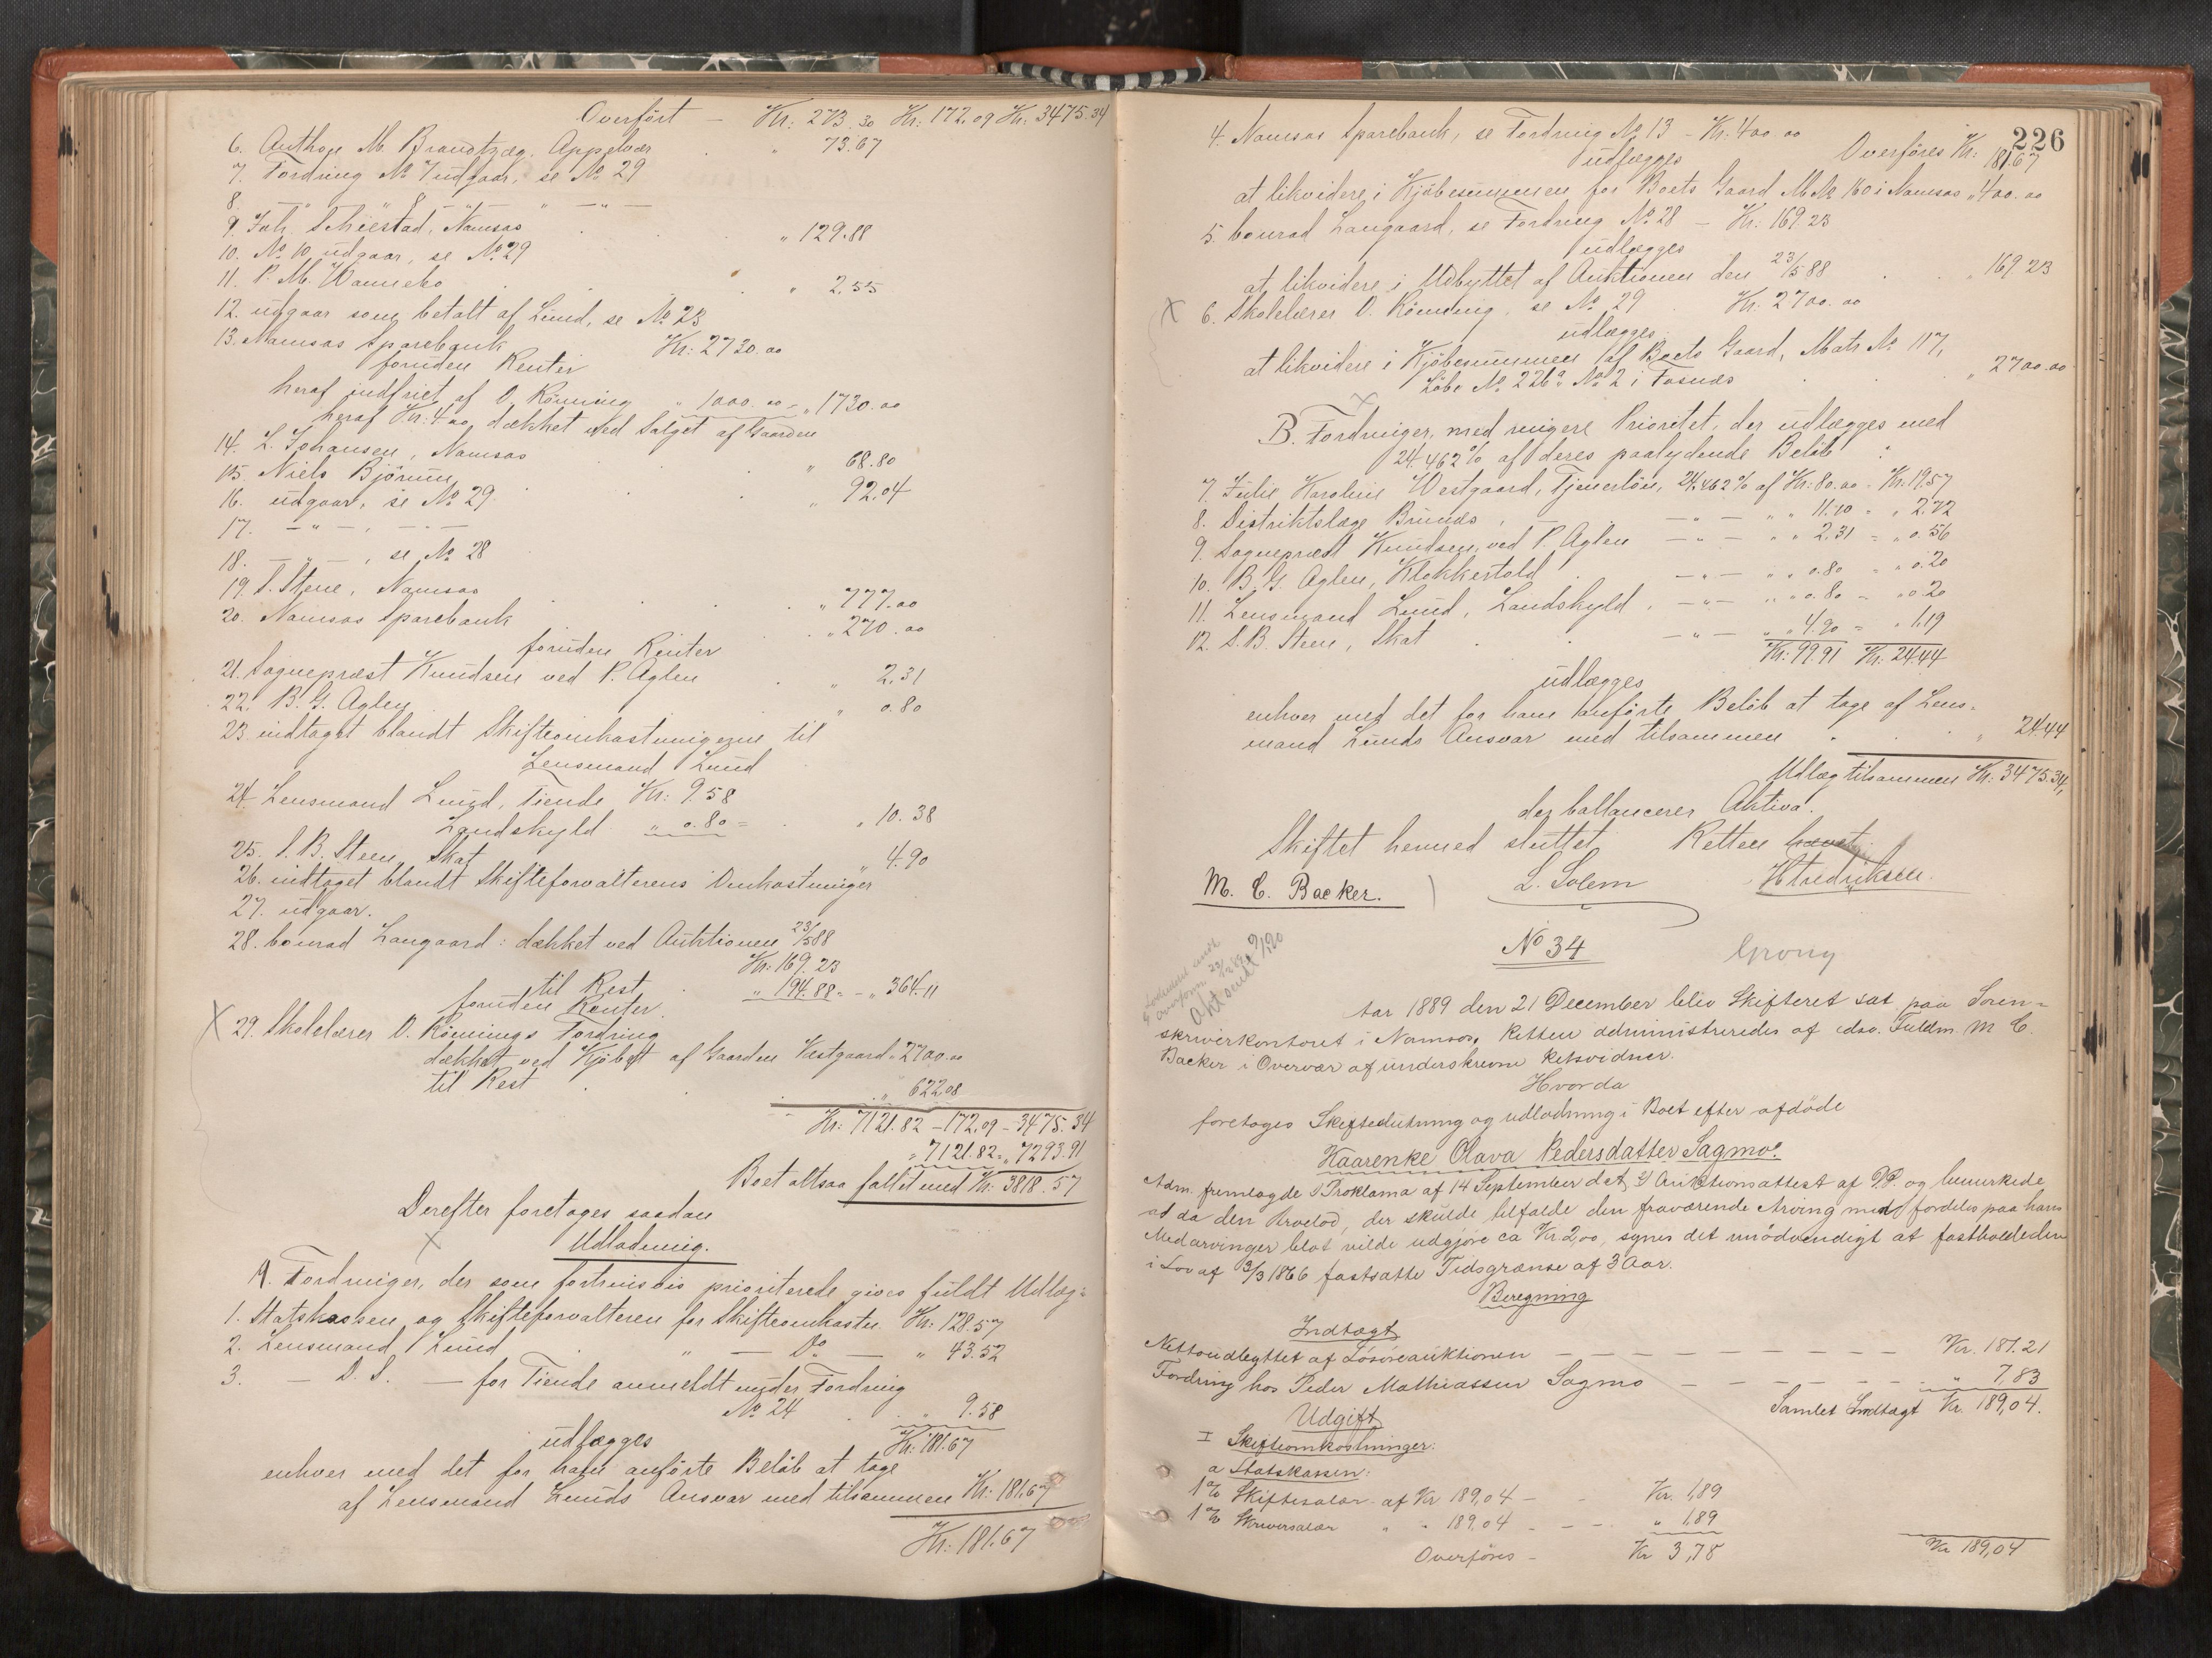 Overført – Kr: 273.30 Kr: 172.09 Kr: 3475.34
6. Anthon M. Brandtzæg, Appelvær " 73.67
7. Fordring No 7 udgaar, se No 29
8. – " – 8 – " – " – " –
9. Joh. Schiestad, Namsos " 129.88
10. No 10 udgaar, se No 29
11. P. M. Wannebo " 2.55
12. udgaar som betalt af Lund, se No 23
13. Namsos Sparebank Kr: 2730.00
foruden Renter
heraf indfriet af O. Rönning " 1000.00 = " 1730.00
heraf Kr: 400 dækket ved Salget af Gaarden
14. L. Johansen, Namsos " 68.80
15. Niels Bjørum " 92.04
16. udgaar, se No 29.
17. – " – , – " –
18. – " – , se No 28
19. S. Stene, Namsos " 777.00
20. Namsos Sparebank " 270.00
foruden Renter
21. Sogneprest Knudsen ved P. Aglen " 2.31
22. B. G. Aglen " 0.80
23. indtaget blandt Skifteomkostningerne til
Lensmand Lund
24. Lensmand Lund, Tiende Kr: 9.58
Landskyld " 0.80 = " 10.38
25. S. B. Steen, Skat " 4.90
26. indtaget blandt Skifteforvalterens Omkostninger
27. udgaar.
28. Conrad Langaard: dækket ved Auktionen 23/5 88
Kr: 169.23
til Rest " 194.88 = – " 364.11
foruden Renter.
X 29. Skolelærer O. Rönnings Fordring
dækket ved Kjøbet af Gaarden Vestgaard " 2700.00
til Rest " 622.08
Kr: 7121.82 – 172.09 – 3475.34
" 7121.82 = " 7293.91
Boet altsaa fallit med Kr: 3818.57
Derefter foretoges saadan
Udlodning.
A. Fordringer, der som fortrinsvis prioriterede gives fuldt Udlæg:
1. Statskassen og Skifteforvalteren for Skifteomkoster Kr: 128.57
2. Lensmand Lund " – Do – " 43.52
3. – D. S. – for Tiende anmeldt under Fordring
No 24 " 9.58
udlægges Kr: 181.67
enhver med det for ham anførte Beløb at tage
af Lensmand Lunds Ansvar med tilsammen Kr: 181.67
Kr: 181.67
226
4. Namsos Sparebank, se Fordring No 13 – Kr. 400.00
Overføres Kr: 181.67
udlægges
at likvidere i Kjøbesummen for Boets Gaard M. No 160 i Namsos " 400.00
5. Conrad Langaard, se Fordring No 28 – Kr: 169.23
udlægges
at likvidere i Udbyttet af Auktionen den 23/5 88 " 169.23
X 6. Skolelærer O. Rönning, se No 29 Kr: 2700.00
udlægges
at likvidere i Kjøbesummen af Boets Gaard, Matr No 117,
Løbe No 226a No 2 i Fosnæs " 2700.00
B. Fordringer, med ringere Prioritet, der udlægges med
24.462 % af deres paalydende Beløb:
7. Julie Karoline Westgaard, Tjenerløn, 24.462 % af Kr: 80.00 = Kr: 19.57
8. Distriktslæge Brunæs, – " – " " 11.10 = " 2.72
9. Sogneprest Knudsen, ved P. Aglen – " – " " 2.31 = " 0.56
10. B. G. Aglen, Klokkertold – " – " " 0.80 = " 0.20
11. Lensmand Lund, Landskyld – " – " " 0.80 = " 0.20
12. S. B. Steen, Skat – " – " " 4.90 = " 1.19
Kr: 99.91 Kr: 24.44
udlægges
enhver med det for ham anførte Beløb at tage af Lens-
mand Lunds Ansvar med tilsammen " 24.44
Udlæg tilsammen Kr: 3475.34,
der ballancerer Aktiva.
Skiftet hermed sluttet Retten hævet
M. C. Backer. L. Solem Hendriksen.
No 34 Grong
Aar 1889 den 21 December blev Skifteret sat paa Soren-
skriverkontoret i Namsos, Retten administreredes af edsv. Fuldm. M. C.
Backer i Overvær af underskrevne Retsvidner.
Hvorda
foretoges Skifteslutning og udlodning i Boet efter afdöde
Kaarenke Olava Pedersdatter Sagmo.
Adm. fremlagde 1) Proklama af 14 September d.A. 2) Auktionsattest af D.D. og bemærkede
at da den Arvelod, der skulde tilfalde den fraværende Arving med fordeles paa hans
Medarvinger blot vilde udgjøre ca Kr 2,00, synes det unödvendigt at fastholde den
i Lov af 3/3 1866 fastsatte Tidsgrænse af 3 Aar.
Beregning
Indtægt
Nettoudbyttet af Løsøreauktionen – – – – – – – – – Kr. 181.21
Fordring hos Peder Mathiassen Sagmo – – – – – – " 7,83
Samlet Indtægt Kr. 189,04.
Udgift
I Skifteomkostninger:
a Statskassen:
1 % Skiftesalær af Kr 189,04 – – Kr. 1,89
1 % Skriversalær " " 189,04 – – – " 1.89
Overføres – Kr 3,78 Kr 189,04